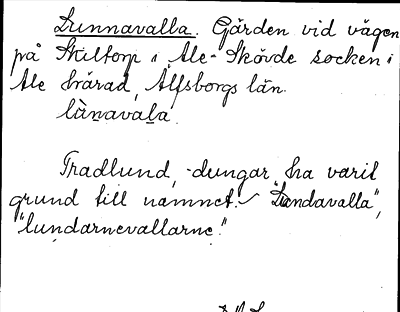 Lunnavalla. Gården vid vägen
på Skiltorp i Ale-Skövde socken i
Ale härad, Älfsborgs län.
lùnavala.
Trädlund, -dungar, ha varit
grund till namnet. "Lundavalla",
"lundarnevallarne."